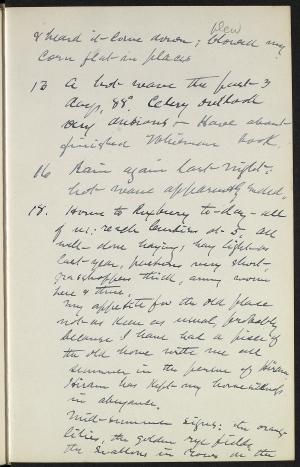 & heard it come down; blowed my
blew
corn flat in places
13 A hot wave the past 3
days, 88°. Celery outlook
very dubious - Have about
finished Whitman book.
16 Rain again last night;
hot wave apparently ended.
18. Home to Roxbury to-day - all
of us; reach at 5; all
well - done haying; hay light as
last year, pastures very short -
grasshoppers thick, army worm
here & there.
My appetite for the old place
not as keen as usual, probably
because I have had a piece of
the old home with me all
summer in the person of Hiram.
Hiram has kept my homesickness
in abeyance.
Mid-summer signs: the orange
lilies, the golden rye fields,
the swallows in rows on the